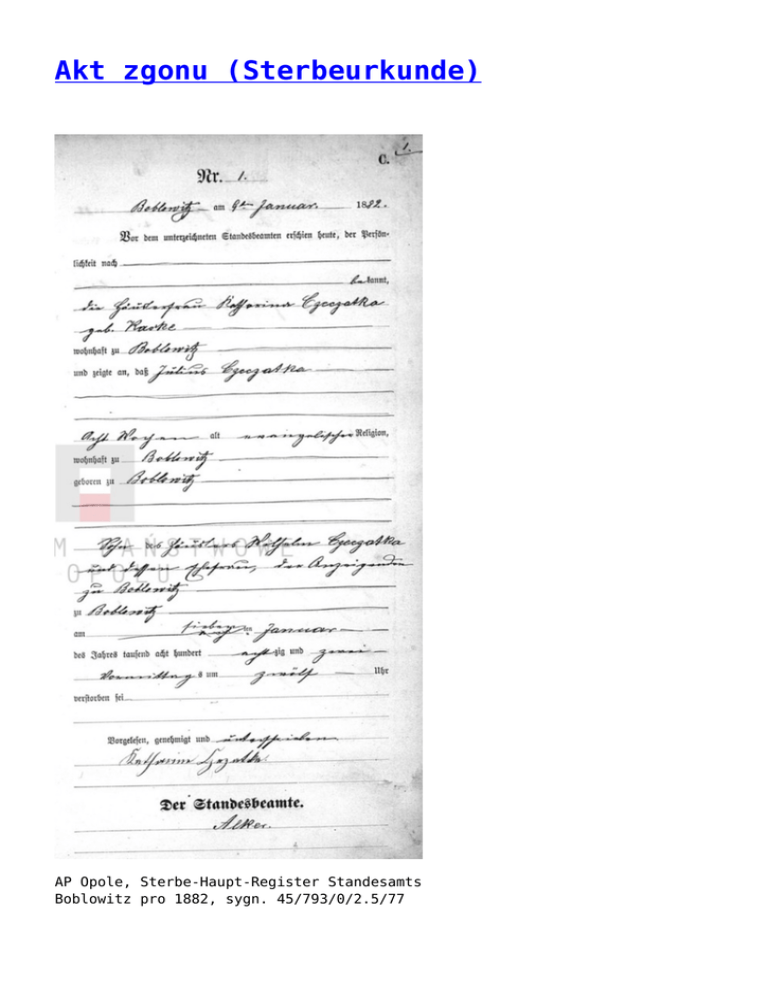 Akt zgonu (Sterbeurkunde)
1.
C.
Nr. 1.
Boblowitz am 9ten Januar 1882.
Vor dem unterzeichneten Standesbeamten erschien heute, der Persön-
lichkeit nach
bekannt,
die Häuslerfrau Katharina Czeczatka
geb. Karke
wohnhaft zu Boblowitz
und zeigte an, daß Julius Czeczatka
Acht Wochen alt evangelischer Religion,
wohnhaft zu Boblowitz
geboren zu Boblowitz
Sohn des Häuslers Wilhelm Czeczatka
und dessen Ehefrau, der Anzeigenden
zu Boblowitz
zu Boblowitz
am sieben ten Januar
des Jahres tausend acht hundert achtzig und zwei
Vormittags um zwölf Uhr
verstorben sei
Vorgelesen, genehmigt und unterschrieben
Katharina
Der Standesbeamte.
Alker.
AP Opole, Sterbe-Haupt-Register Standesamts
Boblowitz pro 1882, sygn. 45/793/0/2.5/77